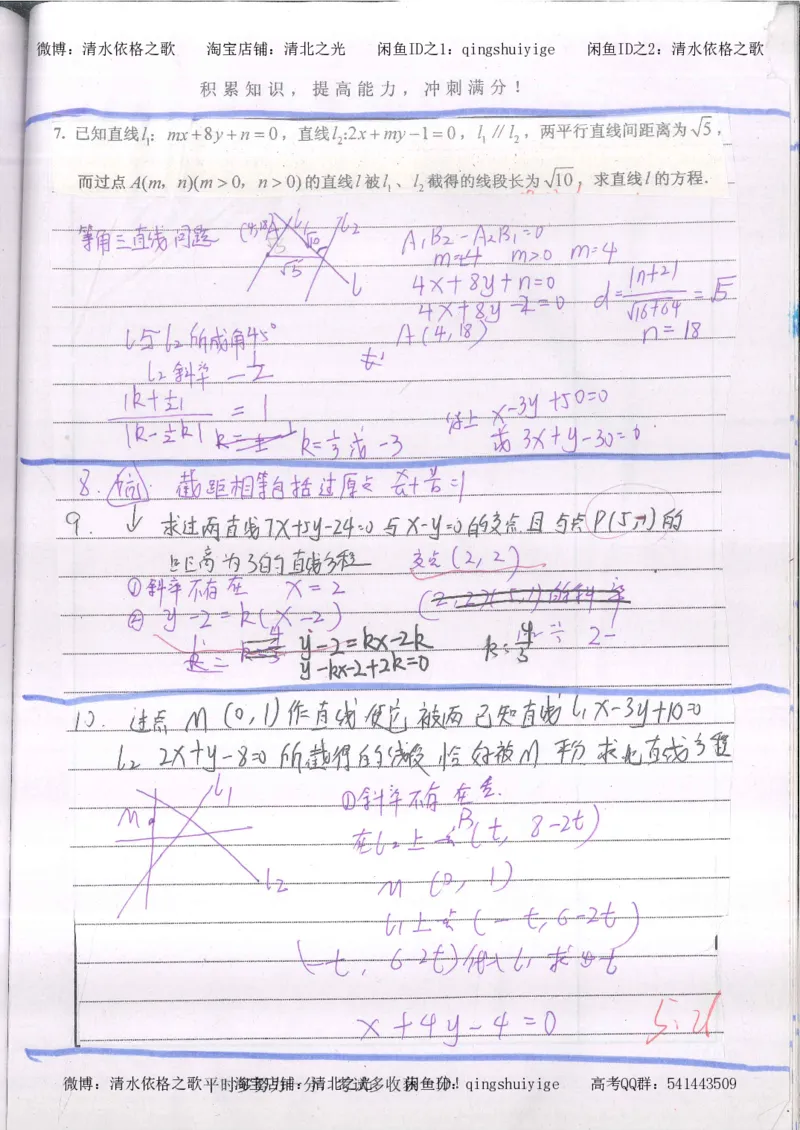 微博：清水依格之歌 淘宝店铺：清北之光 闲鱼ID之1：qingshuiyige 闲鱼ID之2：清水依格之歌
积累知识，提高能力，冲刺满分！
7. 已知直线l₁: mx+8y+n=0，直线l₂:2x+my-1=0，l₁∥l₂，两平行直线间距离为√5，
而过点A(m，n)(m>0，n>0)的直线l被l₁、l₂截得的线段长为√10，求直线l的方程.
等角三直线问题 (4,18)A l₁ l₂ √10 √5 l
A₁B₂-A₂B₁=0
m=±4 m>0 m=4
4x+8y+n=0
4x+8y-2=0 d=|n+2|/√16+64=√5
A(4,18) n=18
l与l₂所成角45°
l₂斜率 -1/2
|k+1/2|/|k-1/2k|=1
k=1/3或-3
综上 x-3y+50=0
或 3x+y-30=0
8. 截距相等包括过原点 x/a+y/b=1
9. ↓ 求过两直线7x+5y-24=0与x-y=0的交点且与点P(5,-1)的
距离为3的直线方程 交点(2,2)
①斜率不存在 x=2
② y-2=k(x-2)
y-2=kx-2k
y-kx-2+2k=0
10. 过点M(0,1)作直线使它被两已知直线l₁x-3y+10=0
l₂ 2x+y-8=0所截得的线段恰好被M平分求此直线方程
M l₁ l₂
①斜率不存在舍.
在l₂上点B(t, 8-2t)
M(0, 1)
l₁上点(-t,6-2t)
(-t, 6-2t)代入l₁求出t
x+4y-4=0
5.21
微博：清水依格之歌 淘宝店铺：清北之光 闲鱼ID：qingshuiyige 高考QQ群：541443509